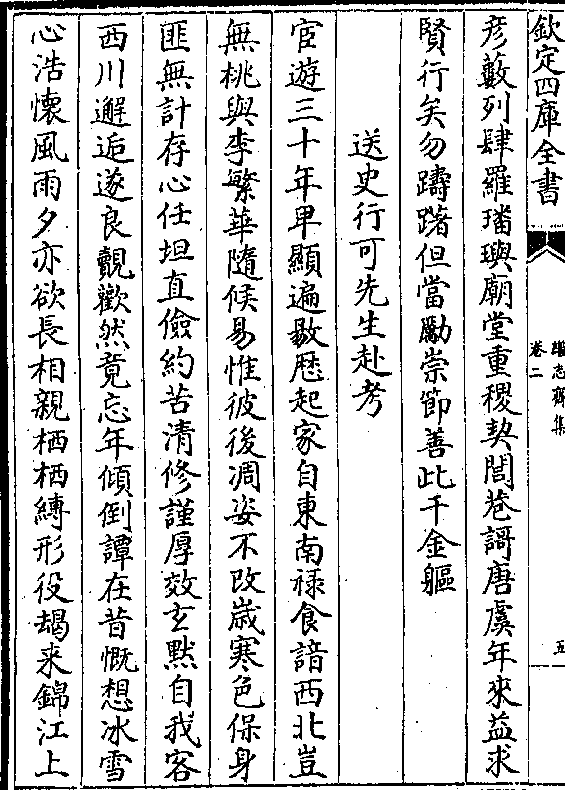 欽定四庫全書
繼志齋集
卷二
五
彦藪列肆羅璠璵廟堂重稷契閭巷謌唐虞年來益求
賢行矣勿躊躇但當勵崇節善此千金軀
送史行可先生赴考
宦遊三十年卑顯遍敭歴起家自東南禄食諳西北豈
無桃與李繁華隨候易惟彼後凋姿不改歳寒色保身
匪無計存心任坦直儉約苦清修謹厚效玄黙自我客
西川邂逅遂良覿歡然竟忘年傾倒譚在昔慨想冰雪
心浩懷風雨夕亦欲長相親栖栖縳形役朅来錦江上